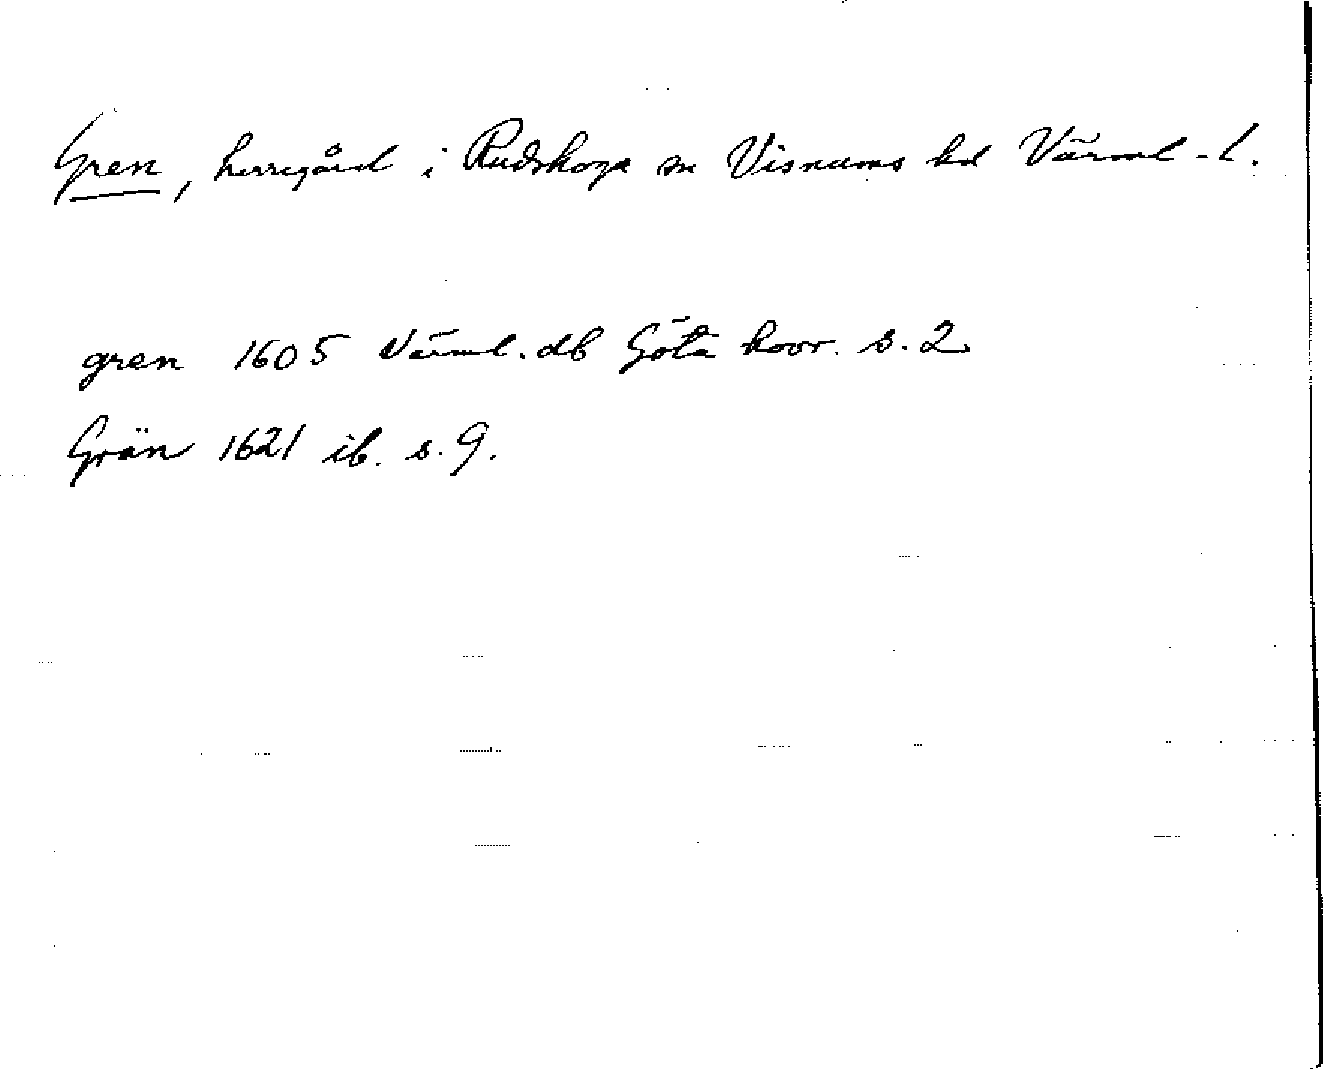 Gren, herregård i Rudskoga sn Visnums hd Värml-l.
gren 1605 Värml. db Göta hovr. s. 2
Grän 1621 ib. s. 9.